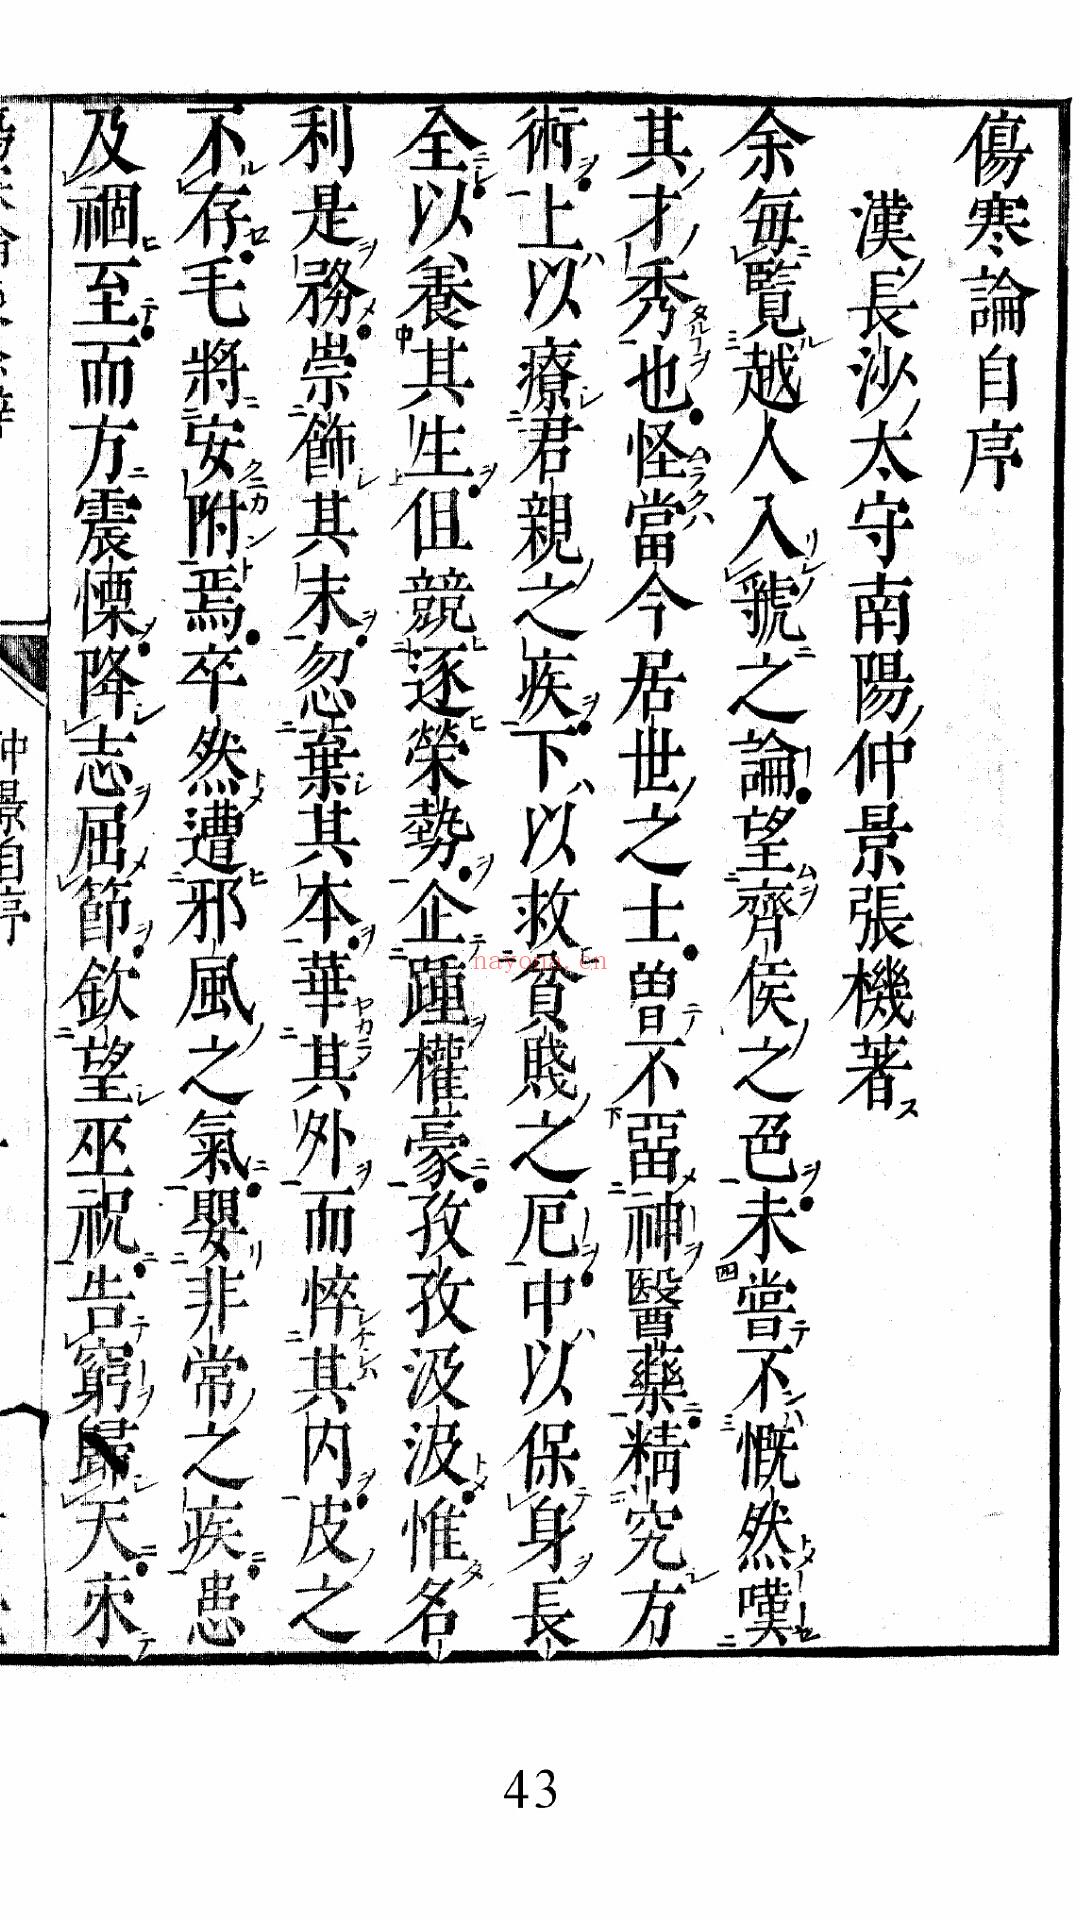 傷寒論自序
漢長沙太守南陽仲景張機著
余每覽越人入虢之論望齊侯之色未嘗不慨然嘆
其才秀也怪當今居世之士曾不畱神醫藥精究方
術上以療君親之疾下以救貧賤之厄中以保身長
全以養其生但競逐榮勢企踵權豪孜孜汲汲惟名
利是務崇飾其末忽棄其本華其外而悴其内皮之
不存毛將安附焉卒然遭邪風之氣嬰非常之疾患
及禍至而方震慄降志屈節欽望巫祝告窮歸天束
仲景自序
nayona.cn
43